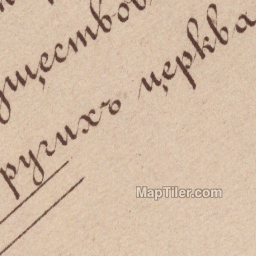 уществов
ругихъ церква
MapTiler.com